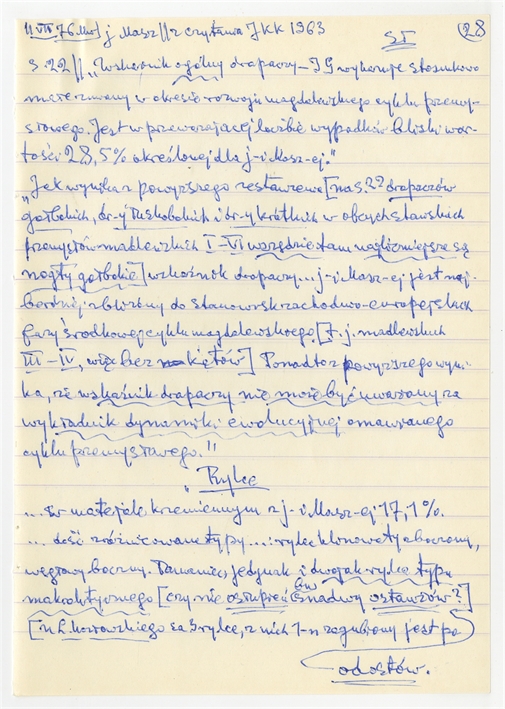 11 VIII 76 j Masz // z czytania JKK 1963
SI
28
S. 22 // „Wskaźnik ogólny drapaczy – IG wykazuje stosunkowo
małe zmiany w okresie rozwoju magdaleńskiego cyklu przemy-
słowego. Jest w przeważającej liczbie wypadków bliski war-
tości 28,5% określonej dla j-i Masz-ej."
„Jak wynika z powyższego zestawienia [na s. 22 drapaczów
gołbokich, dr-y łuskobokich i dr-y krótkich w obcych stawskich
przemysłów madlewskich I–VI wszędzie tam najliczniejsze są
nogły gołbokie] wskaźnik drapaczy... j-i Masz-ej jest naj-
bardziej zbliżony do stanowisk zachodnio-europejskich
fazy środkowej cyklu magdaleńskiego. [t. j. madlewskich
III–IV, więc bez kątów] Ponadto z powyższego wyni-
ka, że wskaźnik drapaczy nie może być uważany za
wykładnik dynamiki ewolucyjnej omawianego
cyklu przemysłowego."
„Rylce
... w materiale krzemiennym z j-i Masz-ej 17,1%.
... dość zróżnicowane typy ...: rylec klinowaty boczny,
węgłowy boczny, łamaniec, jedynak i dwojak-rylce typu
makolitycznego [czy nie ostupień nadwy ostawzów?]
[u L. Kozłowskiego są 3 rylce, z nich 1-n zagubiony jest po
odostów.